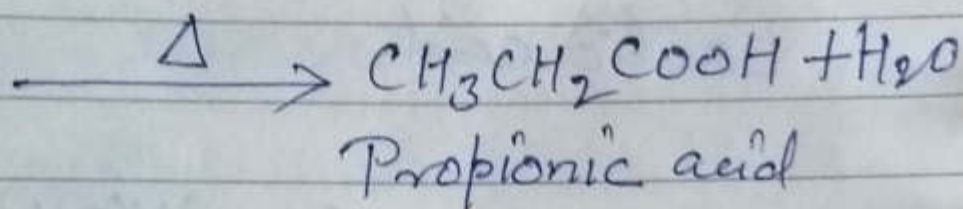 Δ
⟶ CH₃CH₂COOH + H₂O
Propionic acid